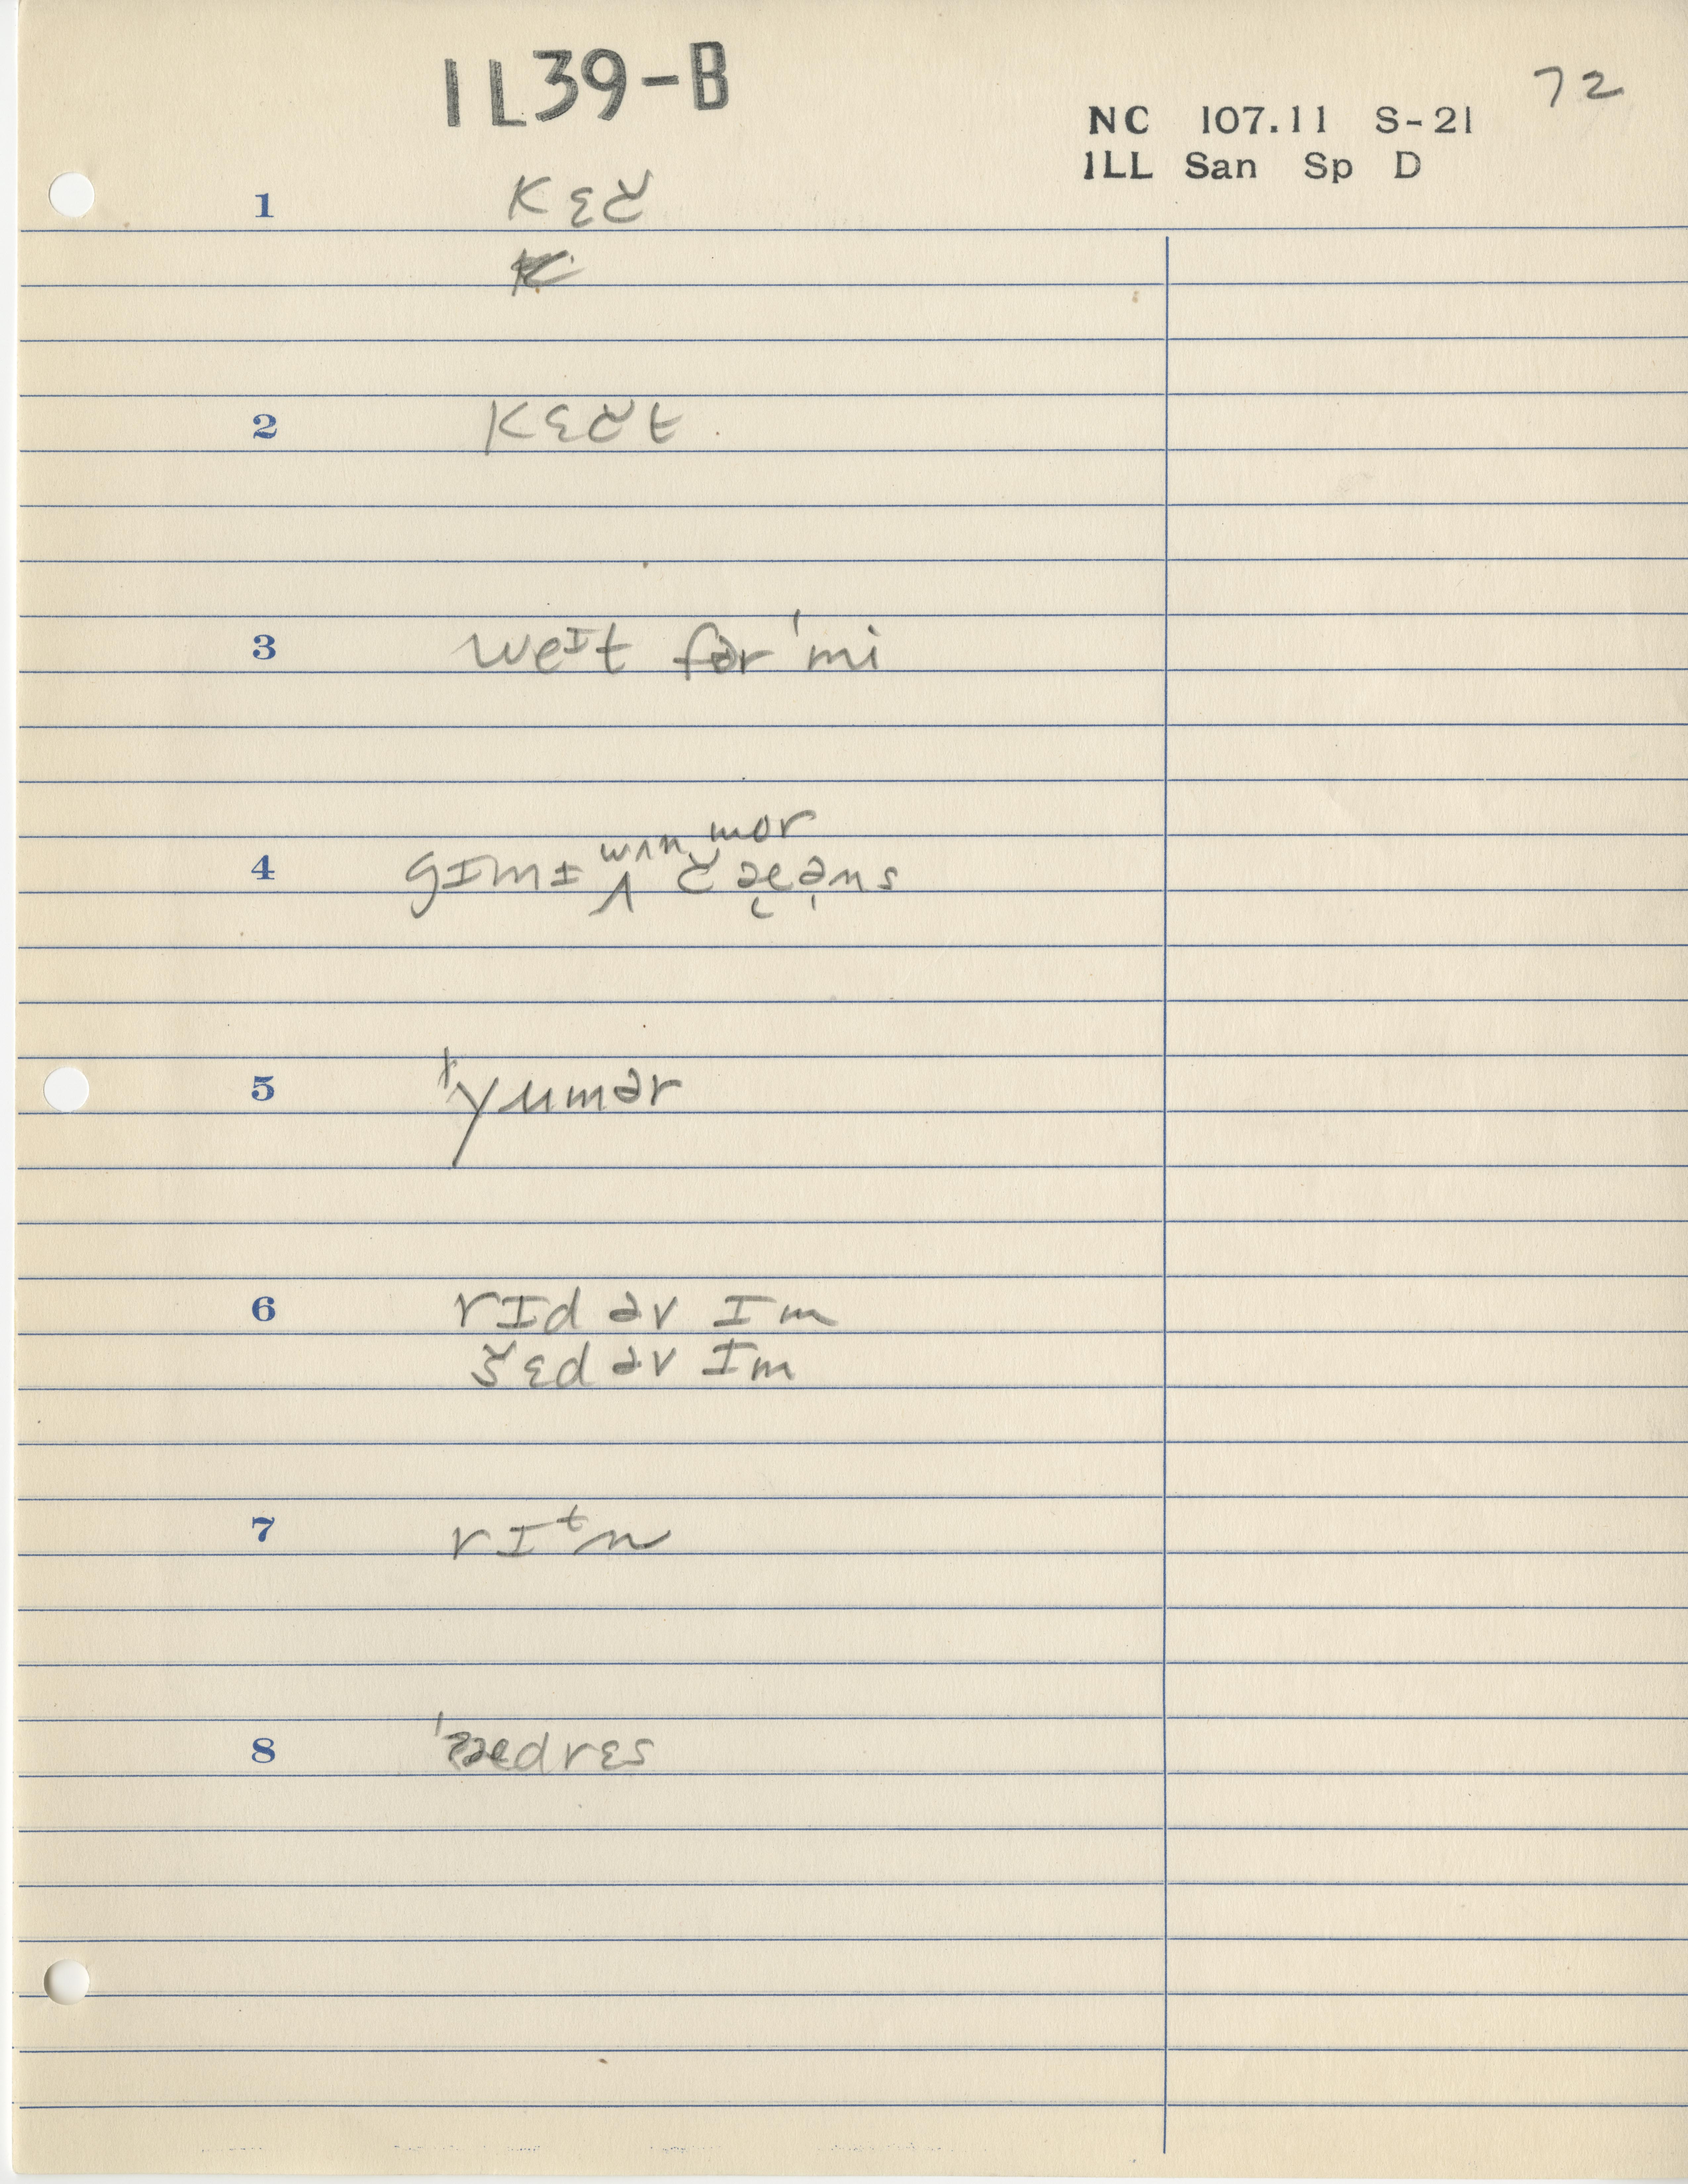 IL39-B
72
NC 107.11 S-21
ILL San Sp D
1 kɛč
2 kɛčt
3 weɪt fər ˈmi
wʌn mor
4 gɪmɪ ʌ čæə̩ns
5 ˈyumər
6 rɪd əv ɪm
šɛd əv ɪm
7 rɪᵗn
8 ˈædrɛs